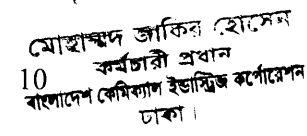 মোহাম্মদ জাকির হোসেন
কর্মচারী প্রধান
10
বাংলাদেশ কেমিক্যাল ইন্ডাস্ট্রিজ কর্পোরেশন
ঢাকা।